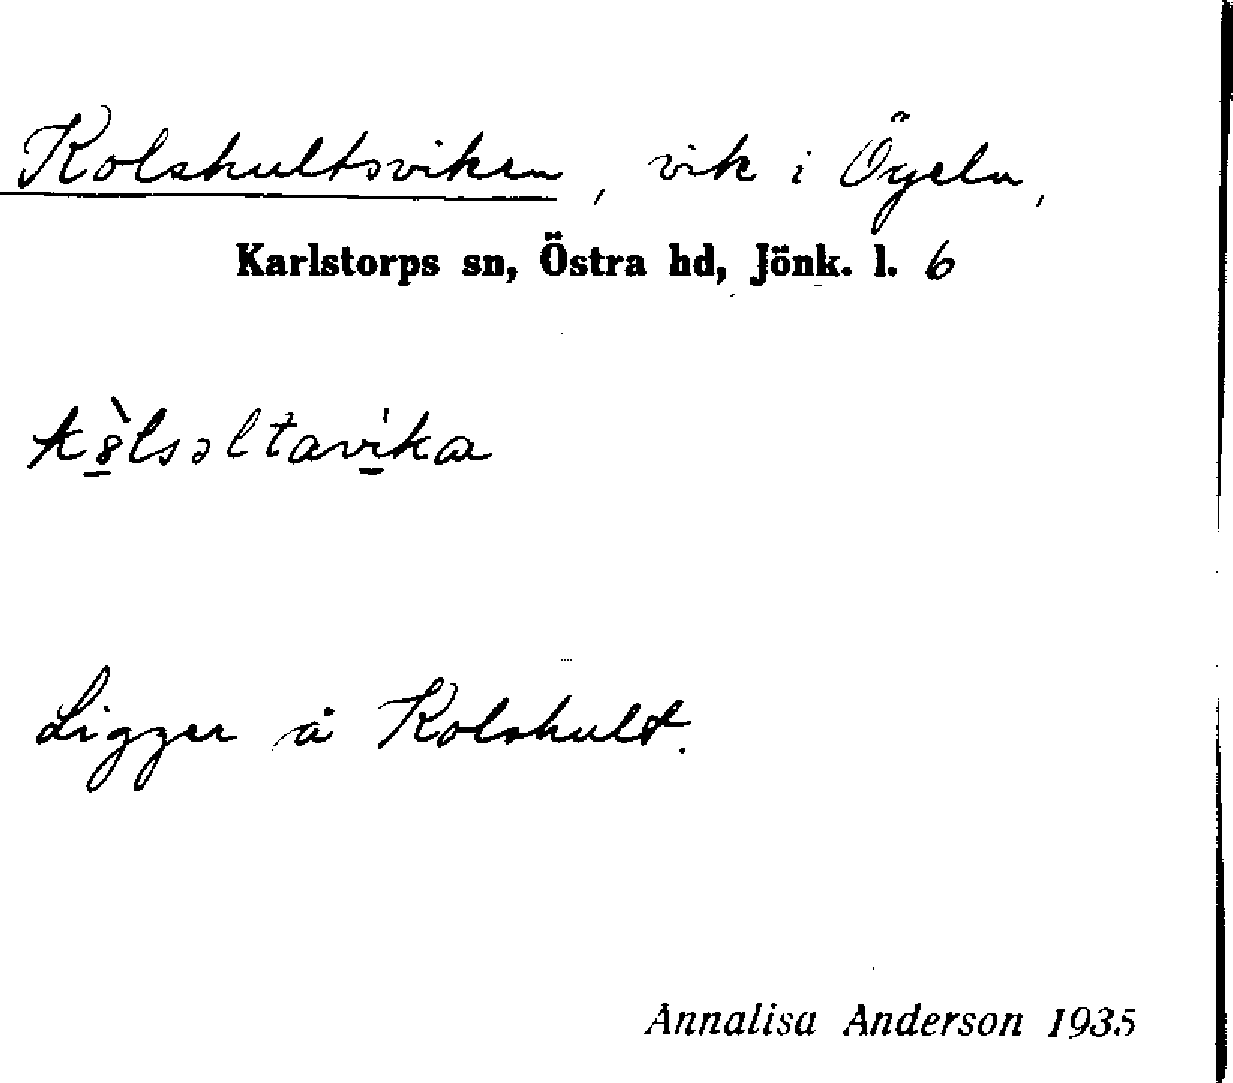 Kolshultsviken, vik i Ögeln,
Karlstorps sn, Östra hd, Jönk. l. 6
Ligger å Kolshult.
Annalisa Anderson 1935